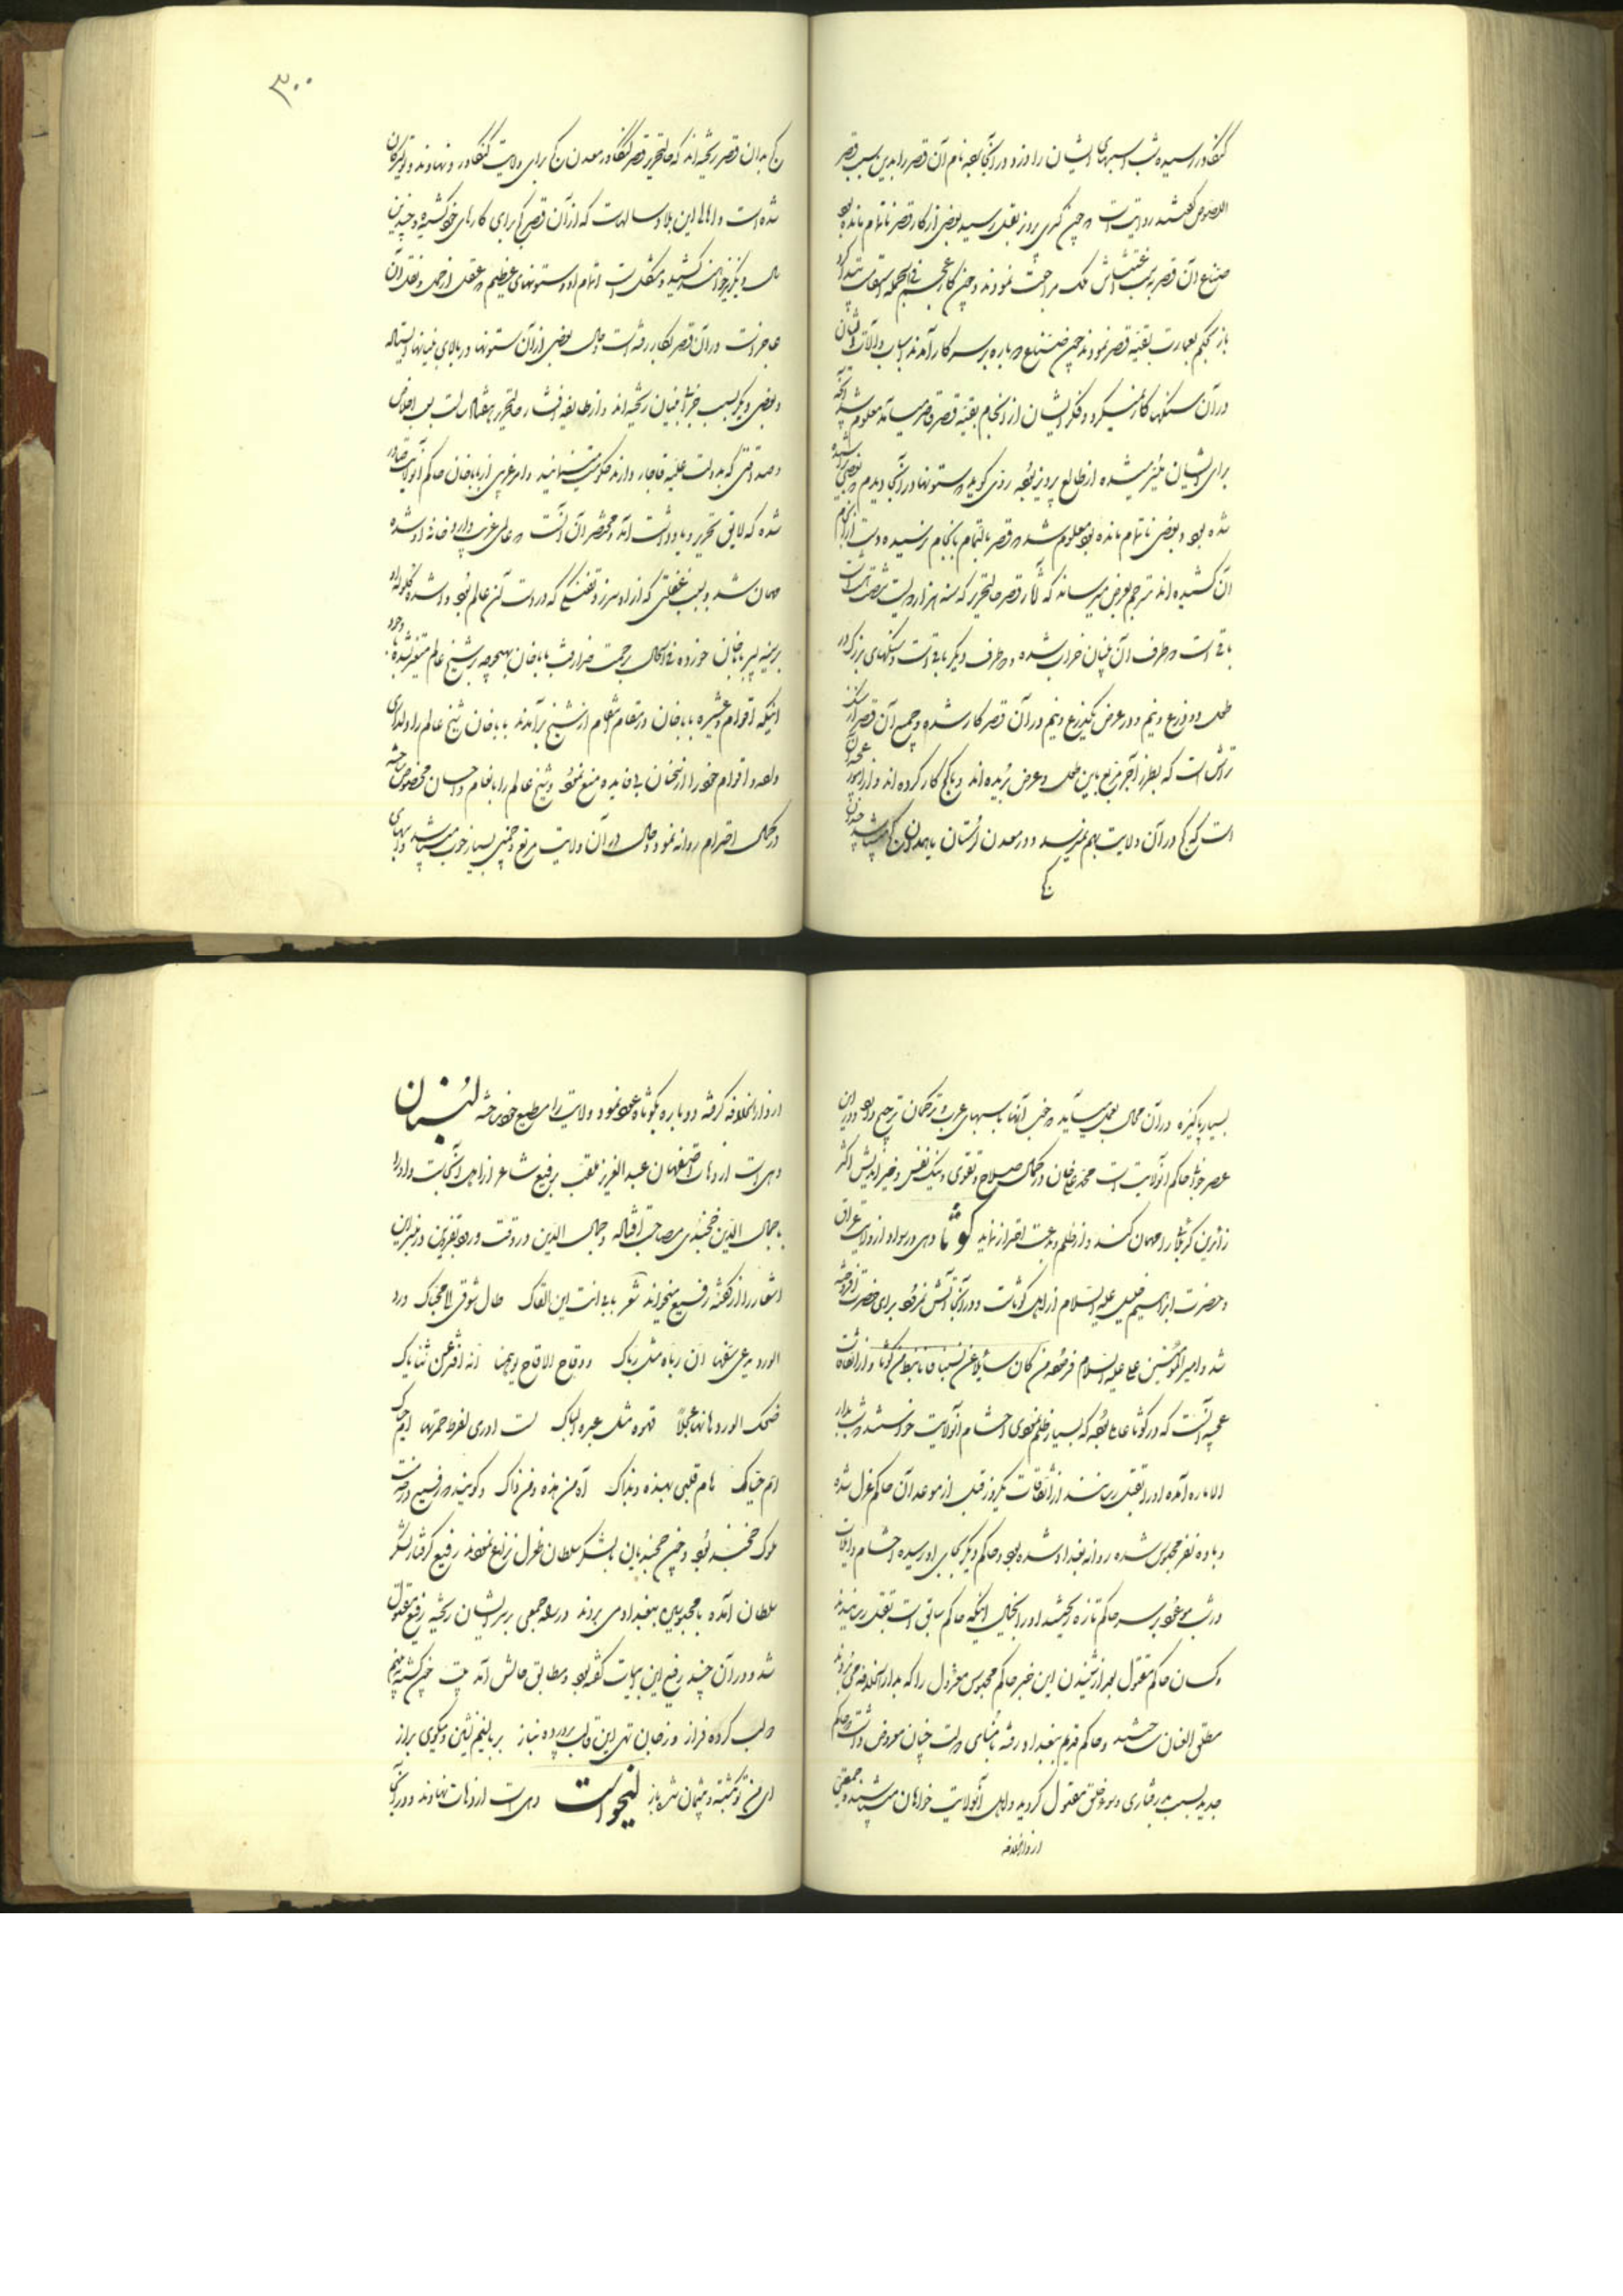 کنکاور رسیده شب اسبهای ایشان را دزد در آنجا بوده نام آن قصر را بدین سبب قصر
اللصوص گفتند روایت است چون کسری پرویز بقتل رسید بعضی از کار قصر ناتمام مانده بود
صناع آن قصر مراجعت نمودند و چون کار عجم فی الجمله استقامت پیدا کرد
باز حکم بعمارت بقیه قصر نمودند چون صناع دوباره بر سر کار آمدند اسباب و آلات ایشان
در آن سنگها کار نمیکرد و فکر ایشان از انجام بقیه قصر قاصر میآمد معلوم شد آنچه
برای ایشان میسر میشده از طالع پرویز بوده راوی گوید ستونها در آنجا دیدم بعضی تراشیده
شده بود و بعضی ناتمام مانده بود معلوم شد قصر بالتمام بانجام نرسیده دست از انجام
آن کشیده اند مترجم بعرض میرساند که آثار قصر حالتحریر که سنه هزار و دویست شصت است
باقی است دو طرف آن بنیان خراب شده و دو طرف دیگر باقی است و سنگهای بزرگ در
طول دو ذرع و نیم و در عرض یکذرع و نیم در آن قصر کار شده و جمیع آن قصر از سنگ
تراش است که بطرز آجر مربع باین طول و عرض بریده اند و با گچ کار کرده اند و از امور عجیبه آن
است که گچ در آن ولایت بهم نمیرسد و در معدن لرستان یا همدان گچ میباشد چندان
گچ
۳۰۰
گچ بدان قصر ریخته اند که حالتحریر قصر کنکاور معدن گچ برای ولایت کنکاور و نهاوند و تویسرکان
شده است و اهالی این بلاد سالهاست که از آن قصر گچ برای کارهای خود کشیده و چندین
سال دیگر نیز خواهند کشید و مشکل است اتمام او و ستونهای عظیم که عقل از حمل و نقل آن
عاجز است در آن قصر بکار رفته است و حال بعضی از آن ستونها در بالای بنیانها ایستاده
و بعضی دیگر بسبب خرابی بنیان ریخته اند و از طایفه افشار حالتحریر
شده که لایق تحریر و یادداشت آمد و مختصر آن آنست که عالمی عرب وارد خانه او شده
مهمان شد و بسبب غفلتی که از او سرزد تفنگی که در دست آن عالم بود در شده گلوله او
بر سینه پسر باباخان خورده فی الحال برحمت خدا رفت باباخان بهیچوجه بر شیخ عالم متغیر نشده با وجود
اینکه اقوام و عشیره باباخان در مقام انتقام از شیخ برآمدند باباخان شیخ عالم را دلداری
داده و اقوام خود را از سخنان بی فایده منع نمود و شیخ عالم را بانعام و احسان مخصوص داشته
در کمال احترام روانه نمود و حال در آن ولایت مرتع و چمنی بسیار خوب میباشد و اسبهای
بسیار پاکیزه در آن محال بعمل میآید که خوب آنها باسبهای عرب و ترکمان ترجیح دارد و در این
عصر خود حاکم آنولایت است محمد خان در کمال صلاح و تقوی و نیک نفسی و خیر اندیش اکثر
زائرین کربلا را مهمان کند و از ظلم و بدعت احتراز نماید کوثا دهی در سواد از ولایت عراق
و حضرت ابراهیم خلیل علیه السلام از اهل کوثاست و در آنجا آتش نمرود برای حضرت افروخته
شد و امیر المؤمنین علی علیه السلام فرموده من کان سائلا عن نسبنا فانا نبط من کوثا و از اتفاقات
عجیبه آنست که در کوثا عاملی بوده که بسیار ظلم نمودی احشام آنولایت خواستند شب بدار
الاماره آمده او را بقتل رسانند از اتفاقات یکروز قبل از موعد آن حاکم عزل شده
و با ده نفر محبوس شده روانه بغداد شده بود و حاکم دیگر بجای او رسیده احشام و ایلات
در شب موعود بر سر حاکم تازه ریختند او را بخیال اینکه حاکم سابق است بقتل رسانیدند
و کسان حاکم مقتول بعد از شنیدن این خبر حاکم محبوس معزول را که بدار الخلافه می بردند
مطلق العنان ساختند و حاکم قدیم ببغداد رفته بامنای دولت چنان معروض داشت که حاکم
جدید بسبب بد رفتاری و سوء خلق مقتول گردید و اهل آنولایت خواهان من میباشند و جمعیتی
از دار الخلافه
از دار الخلافه گرفته دوباره بکوثا عود نمود و ولایت را مطیع خود ساخته لنبان
دهی است از دهات اصفهان عبد العزیز ملقب برفیع شاعر از اهل آنجاست و او را
با جمال الدین خجندی مصاحبت افتاده و جمال الدین در وقت ورود بقزوین در منبر این
اشعار را از گفته رفیع میخواند شعر بابی انت این القاک طال شوقی الی محیاک ورد
الورد یدعی سفها ان ریاه مثل ریاک ووقاح الاقاح یوهمنا انه افتر عن ثنایاک
ضحک الورد هاتها عجلا قهوة مثل عبرة الباک لست ادری لفرط حمرتها احیاک
ام حیاک هام قلبی بهذه و بذاک آه من هذه و من ذاک و گویند که رفیع در خدمت
ملوک خجند بود و چون خجندیان با لشکر سلطان طغرل نزاع نمودند رفیع گرفتار لشکر
سلطان آمده با محبوسین ببغداد می بردند در راه جمعی بر سر ایشان ریخته رفیع مقتول
شد و در آن چند رفیع این ابیات گفته بود و مطابق حالش آمد بیت چون کشته ببینیم
دو لب کرده فراز وز جان تهی این قالب پرورده نیاز بر بالینم نشین و میگوی براز
ای من تو بکشته و پشیمان شده باز لیخواست دهی است از دهات نهاوند و در آنجا